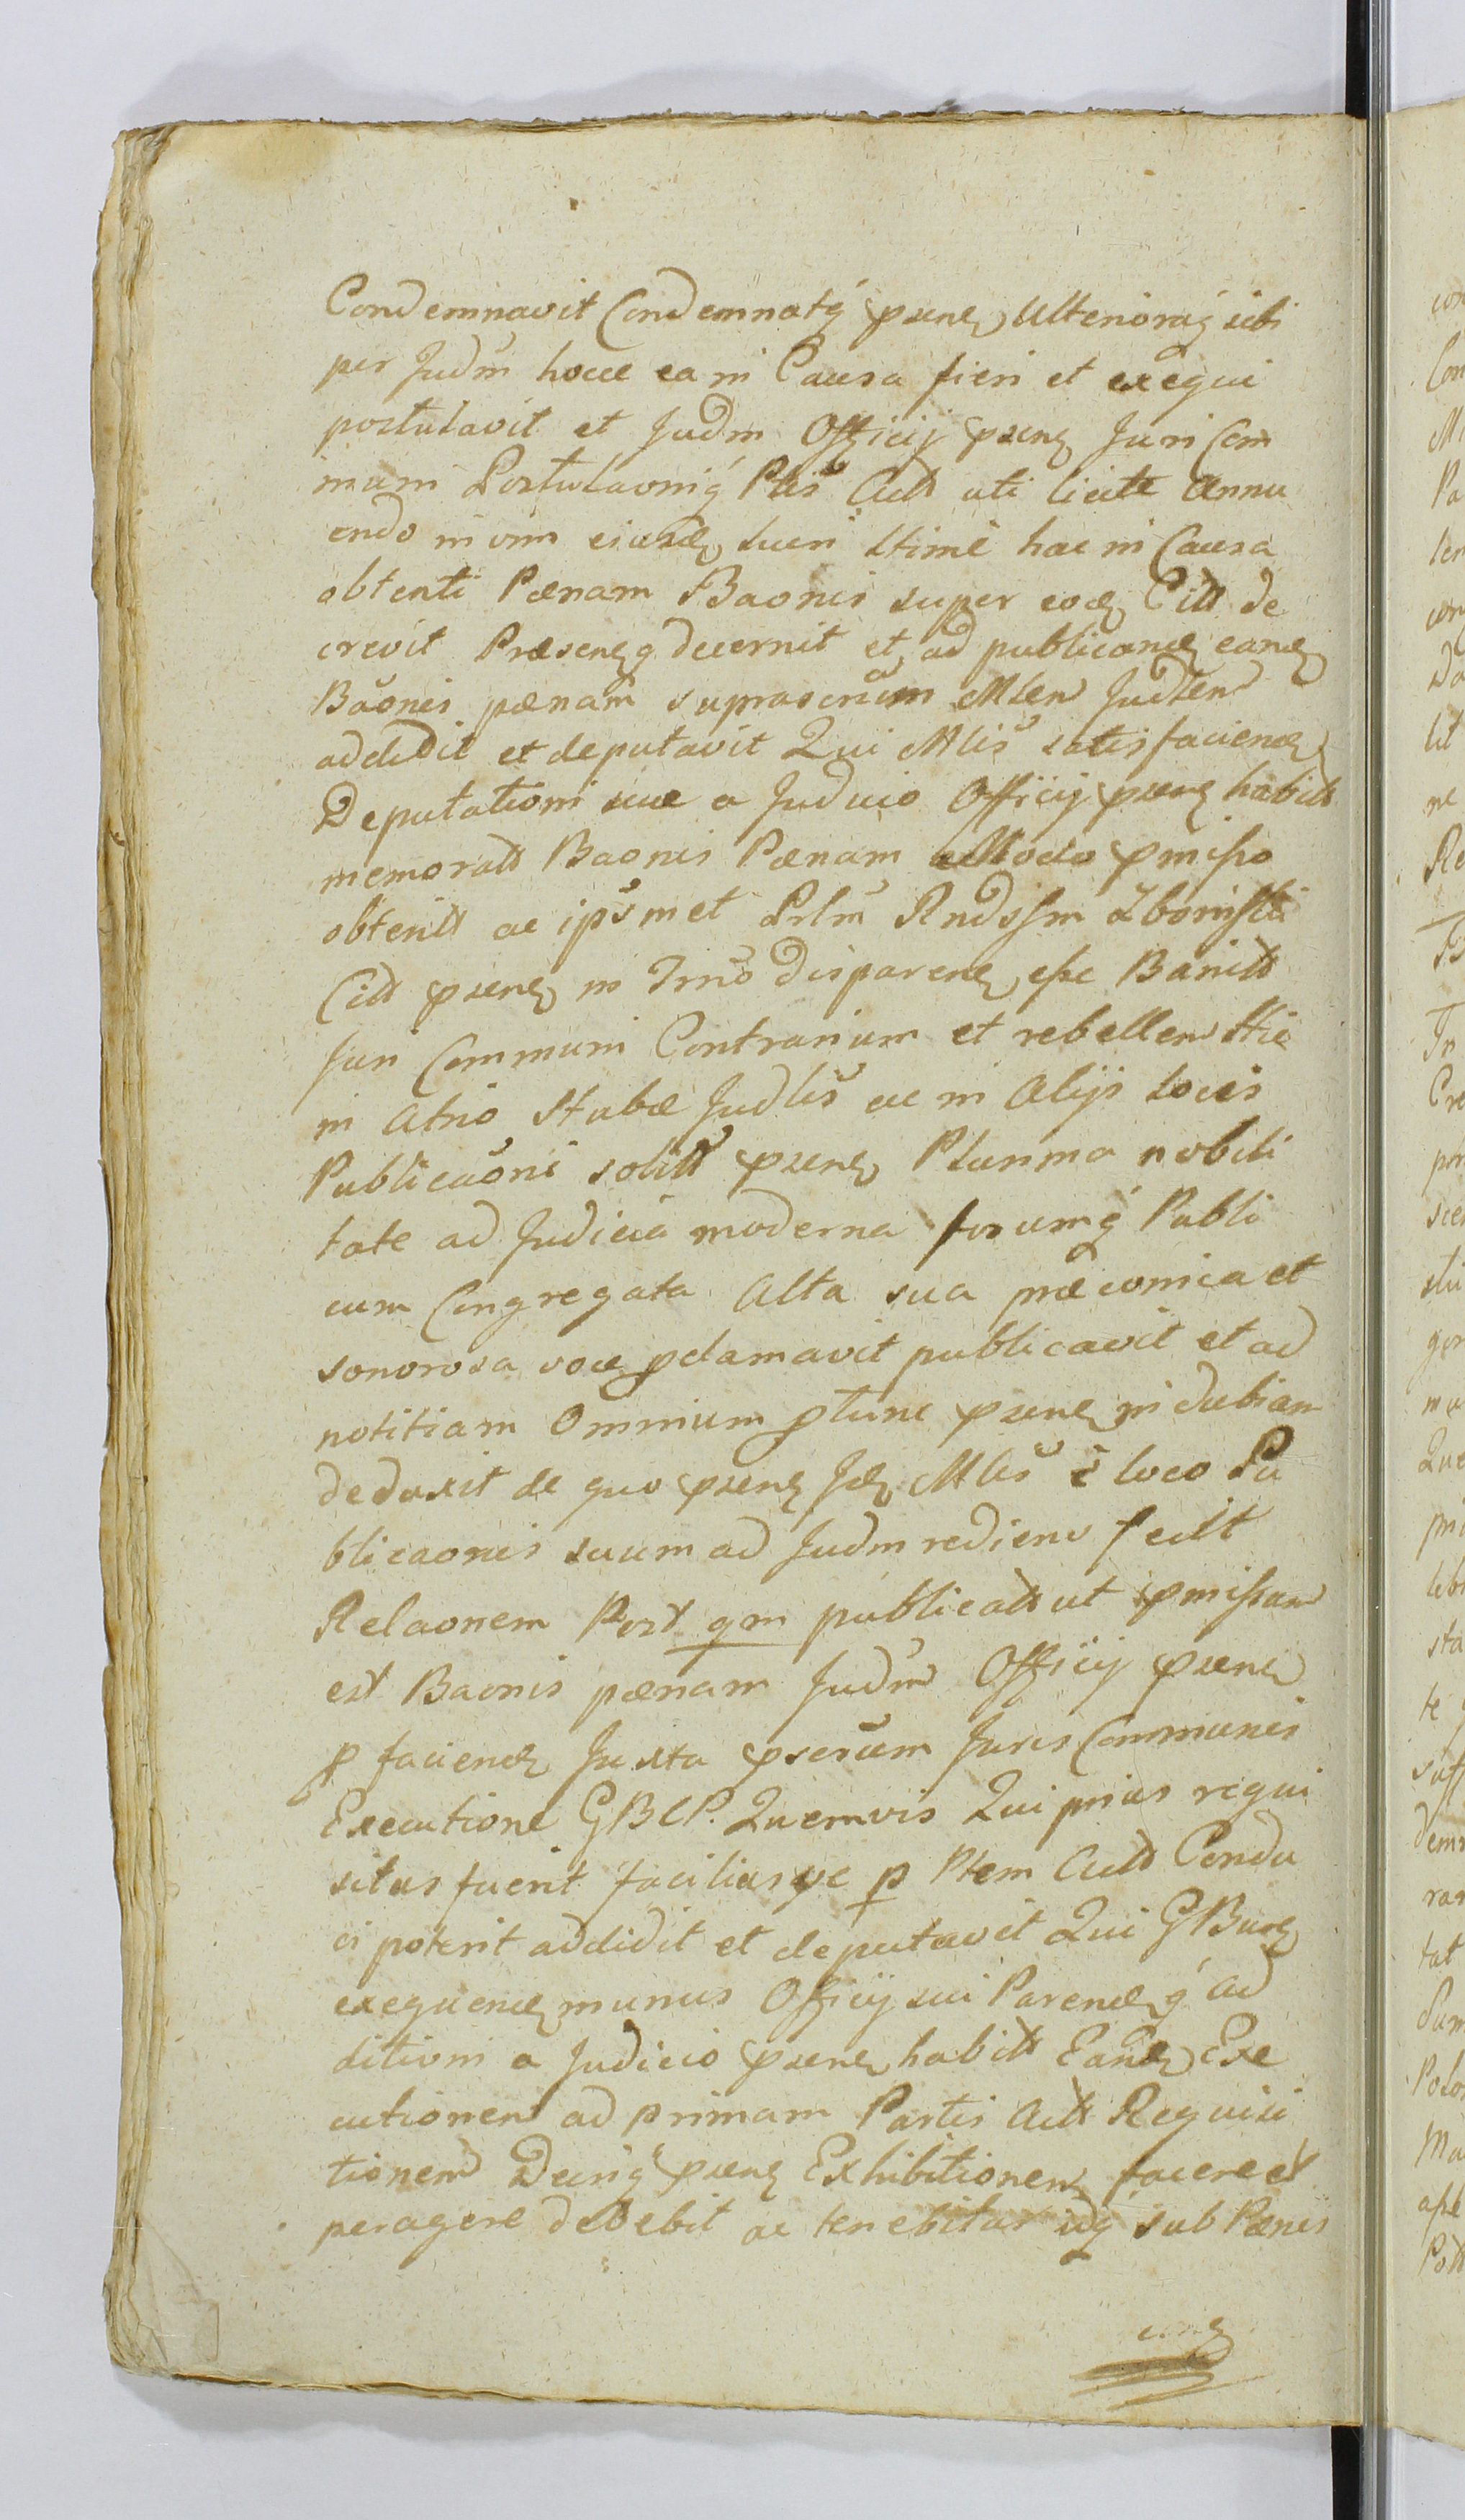 Condemnavit Condemnatq́ₓ psenₓ Ulterioraq́ sibi
per Judm̃ hocce ea in Causa fieri et exequi
postulavit et Judm̃ Officij psenₓ Juri Com
muni Postulaonīq́ Ptis Actt uti licite Annu
endo in vim eiusdₓ lucri Ittimè hac in Causa
obtenti Pænam Baonis super eodₓ Citt de
crevit Præsenₓq decernit et ad publicandₓ eandₓ
Baonis pænam suprascrium Mlem Judlem
addidit et deputavit Qui Mlis satisfaciendₓ
Deputationi suæ a Judicio Officij psenₓ habitt
memoratt Baonis Pænam Modo pmisso
obtentt ac ipsmet Prlm Rndssm
Citt psenₓ in Trno disparenₓ esse Banitt
Juri Communi Contrarium et rebellem Hic
in Atrio Stubæ Judlis ac in Alijs Locis
Publicaoni solitt psenₓ Plurima nobili
tate ad Judicia moderna forumq́ Publi
cum Congregata Alta sua præconica et
sonorosa voce pclamavit publicavit et ad
notitiam Omnium ptunc psenₓ indubiam
deduxit de quo psenₓ Idₓ Mlis è loco Pu
blicaonis suum ad Judm rediens fecit
Relaonem Post qm publicatt ut pmissum
est Baonis pænam Judm Officij psens
p faciendₓ Juxta pscrium Juris Communis
Executione GBCP. Quemvis Qui prius requi
situs fuerit faciliusqe p Ptem Actt Condu
ci poterit addidit et deputavit Qui GBurₓ
exequendₓ munus Officij sui Parendₓq́ ad
ditioni a Judicio psenₓ habitt Eandₓ Exe
cutionem ad primam Partis Actt Requisi
tionem Decriq́ psenₓ Exhibitionem facere et
peragere debebit ac tenebitur idq́ sub Pænis